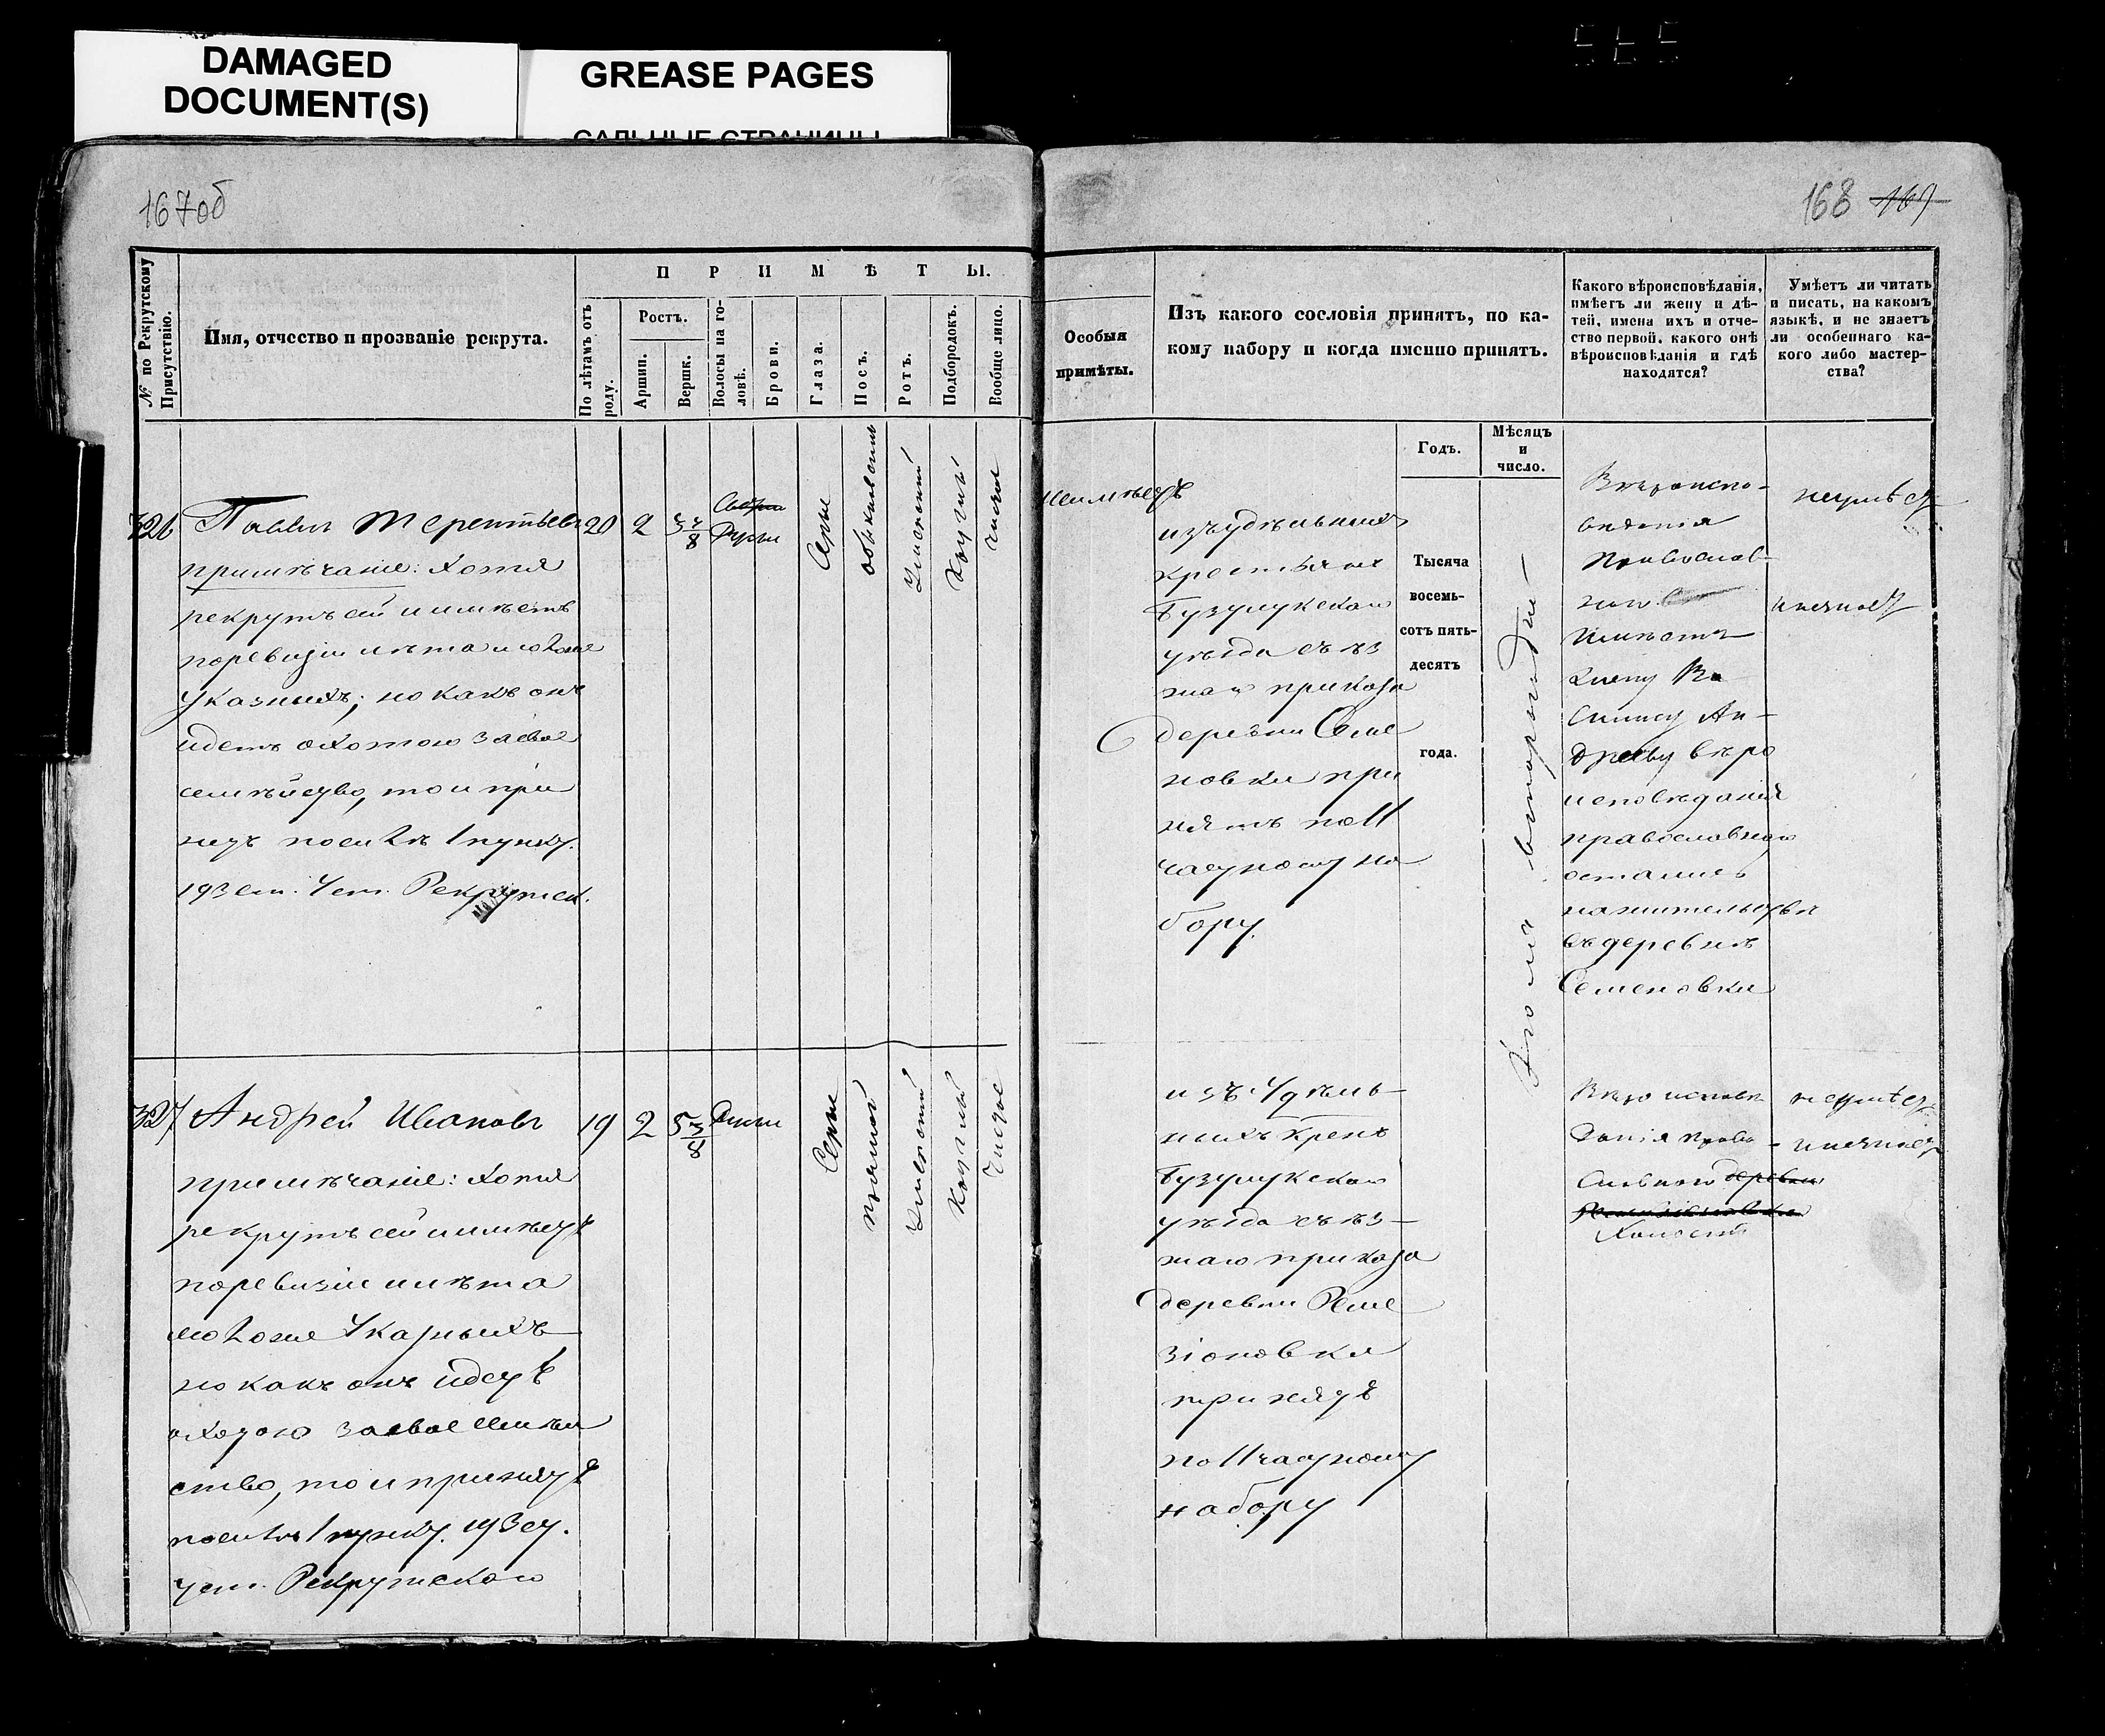 DAMAGED
DOCUMENT(S)
GREASE PAGES
САЛЬНЫЕ СТРАНИЦЫ
167об
168 167
№ по Рекрутскому Присутствію.
Имя, отчество и прозваніе рекрута.
ПРИМѢТЫ.
По лѣтамъ отъ роду.
Ростъ.
Аршин.
Вершк.
Волосы на головѣ.
Брови.
Глаза.
Носъ.
Ротъ.
Подбородокъ.
Вообще лицо.
Особыя
примѣты.
Изъ какого сословія принятъ, по ка-
кому набору и когда именно принятъ.
Годъ.
Мѣсяцъ
и
число.
Какого вѣроисповѣданія,
имѣетъ ли жену и дѣ-
тей, имена ихъ и отче-
ство первой, какого онѣ
вѣроисповѣданія и гдѣ
находятся?
Умѣетъ ли читать
и писать, на какомъ
языкѣ, и не знаетъ
ли особеннаго ка-
кого либо мастер-
ства?
326
Павелъ Терентьевъ
примѣчаніе: Хотя
рекрутъ сей и имѣетъ
поревизіи лѣта моложе
указныхъ; но какъ онъ
идетъ охотою засвое
семѣйство, то и при
нятъ посилѣ 1 пункт.
193 ст. Уст. Рекрутск.
20
2
5 4/8
Русые
Серые
обыкновенный
Умеренный
Круглый
чистое
неимѣетъ
изъудѣльныхъ
крестьянъ
Бузулукскаго
уѣзда съѣз
жаго приказа
деревни Семе
новки при
нятъ по 11
частному на
бору.
Тысяча
восемь-
сотъ пять-
десятъ
года.
Вѣроиспо-
веденія
Православ-
наго
Имѣетъ
жену Ва
силису Ан-
дрееву вѣро
исповѣданія
православнаго
остались
нажительствѣ
въдеревнѣ
Семеновки
неумѣетъ
инезнаетъ
327
Андрей Ивановъ
примѣчаніе: Хотя
рекрутъ сей и имѣетъ
поревизіи и лѣта
моложе Указныхъ
но какъ онъ идетъ
охотою засвое семѣй
ство, то и принятъ
посилѣ 1 пункт. 193 ст.
уст. Рекрутскаго
19
2
5 3/8
Русые
Серые
прямой
Умеренный
Круглый
Чистое
изъ Удѣль-
ныхъ крест
Бузулукскаго
уѣзда съѣз-
жаго приказа
деревни Реме
зіоновки
принятъ
по 11 частному
набору
Вѣроисповѣ
данія Право-
славнаго деревни
Холостъ
неумѣетъ
инезнаетъ